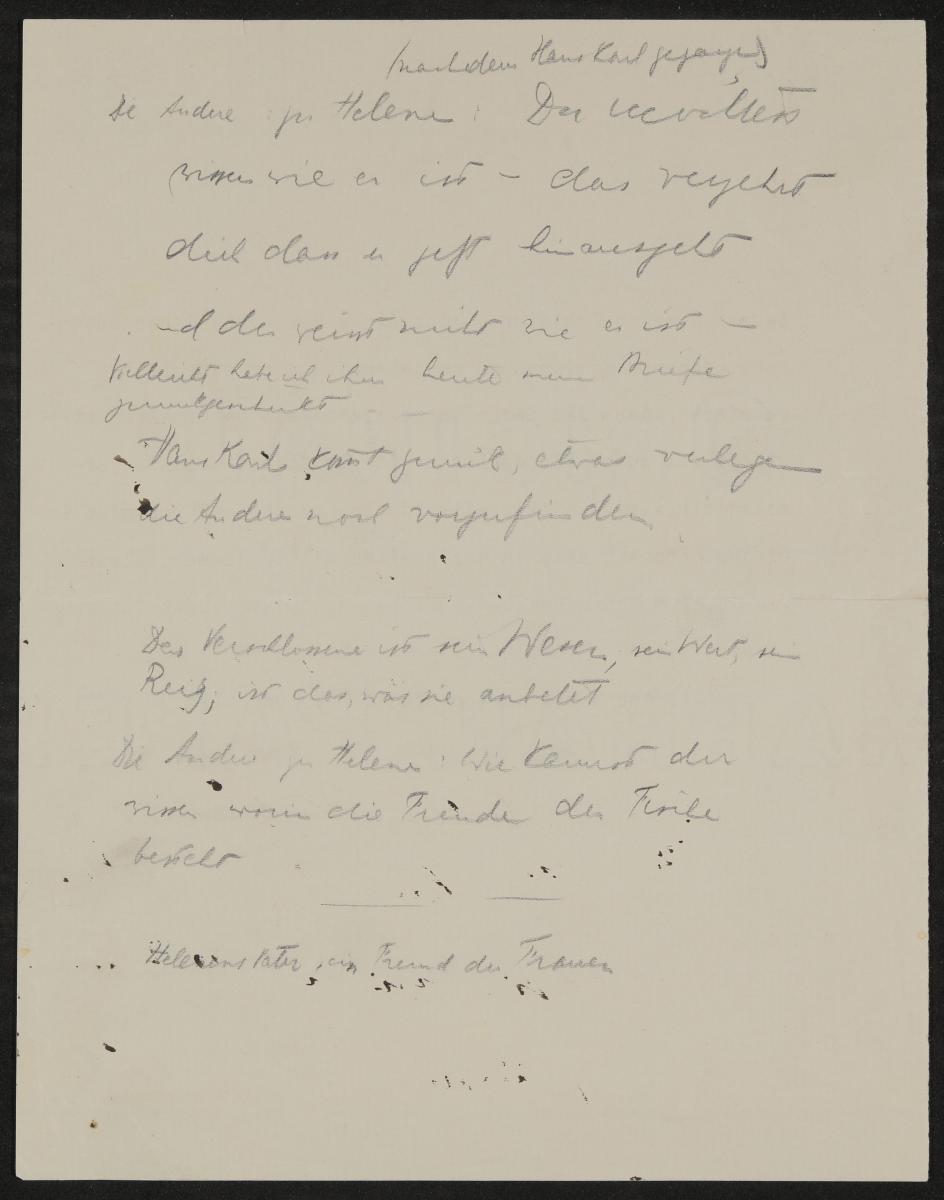 (nachdem Hans Karl gegangen)
Die Andere zu Helene: Du wolltest
wissen wie er ist – das verzehrt
dich dass er jetzt hinausgeht
und du weisst nicht wie er ist –
Vielleicht habe ich ihm heute meine Briefe
zurückgeschickt – –
Hans Karl kommt zurück, etwas verlegen
die Andere noch vorzufinden
Das Verschlossene ist sein Wesen, sein Wert, sein
Reiz, ist das, was sie anbetet
Die Andere zu Helene: Wie kannst du
wissen worin die Freude der
besteht
Helenens Vater, ein Freund der Frauen